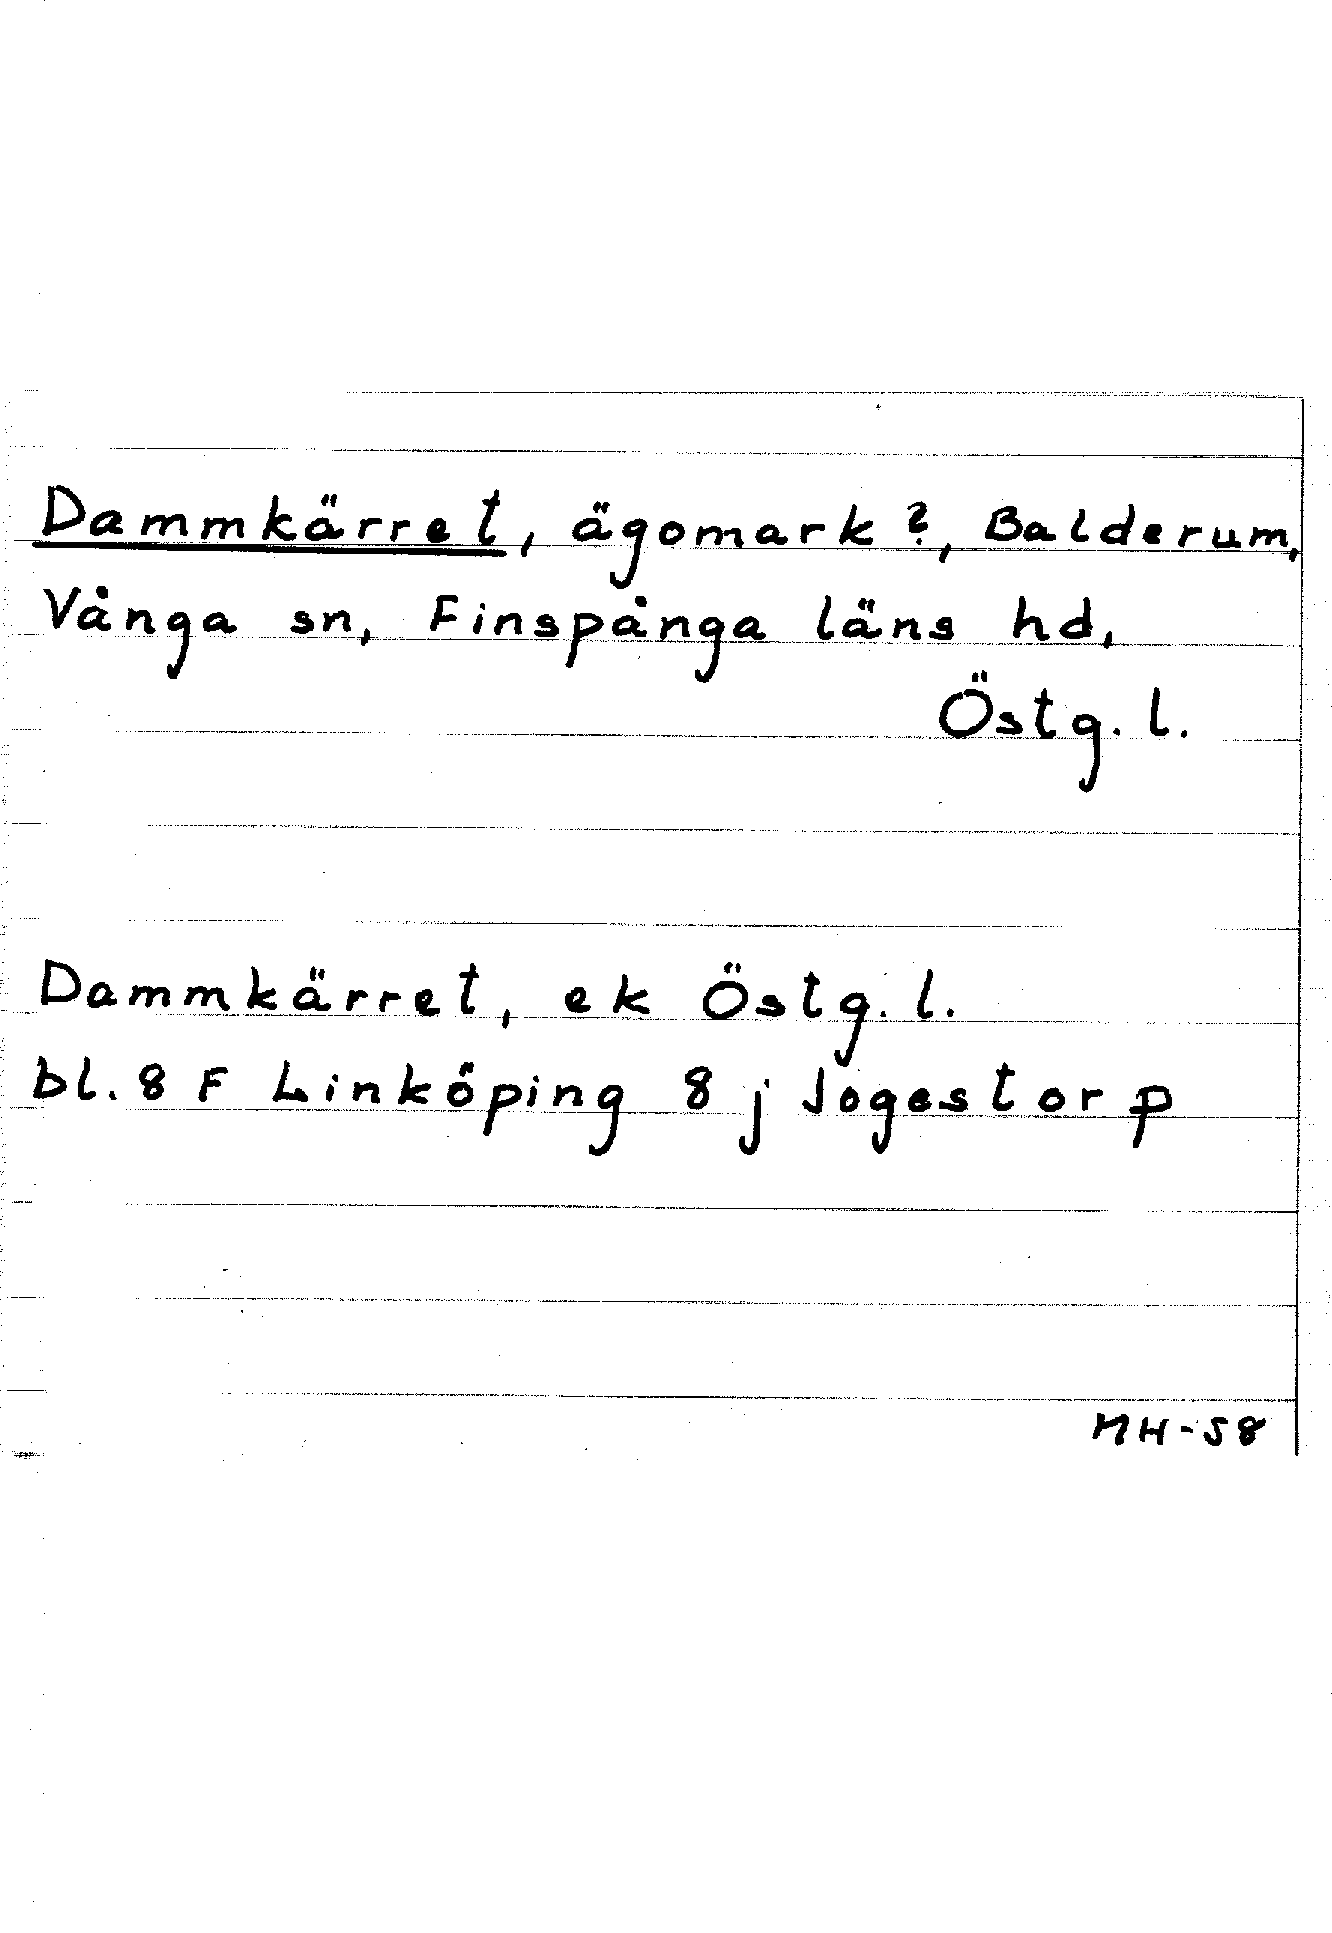 Dammkärret, ägomark?, Balderum,
Vånga sn, Finspånga läns hd,
Östg. l.
Dammkärret, ek Östg. l.
bl. 8 F Linköping 8 j Jogestorp
MH-58